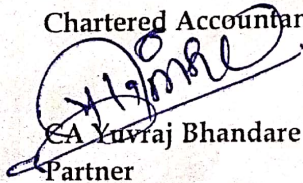 Chartered Accountan
CA Yuvraj Bhandare
Partner